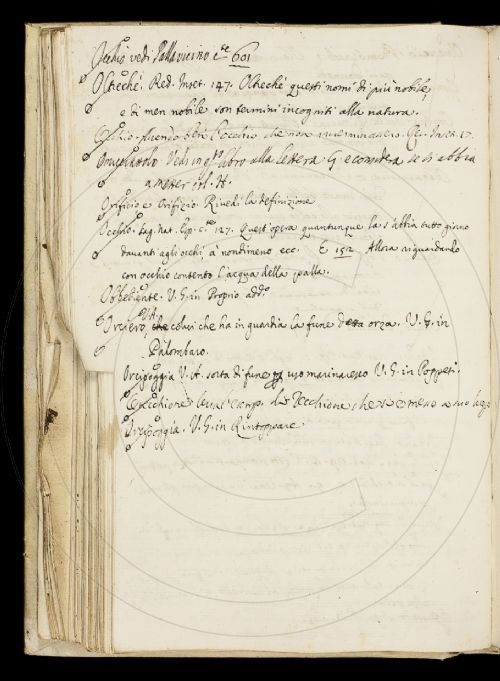 Occhio vedi Pallavicino c.te 601
Oltreché. Red. Inset. 147. Oltreché questi nomi di più nobile,
e di men nobile son termini incogniti alla natura.
Occhio. l'occhio che non Inset. 17.
Vedi in q.to libro alla lettera G. e considera se si abbia
a metter in H.
Orificio e Orifizio. Rivedi la definizione
Occhio. Sag. Nat. Esp. c.te 127. Quest'opera quantunque la s'abbia tutto giorno
davanti agli occhi, à nondimeno ecc. E 152 Allora riguardando
con occhio contento l'acqua della palla.
V. G. in Proprio add.o
Orciero, V.A. colui che ha in guardia la fune detta orza. V. G. in
Palombaro.
Orcipoggia V. A. sorta di fune uso marinaresco V. G. in Poggeti.
Orcipoggia. V. G. in Rintoppare